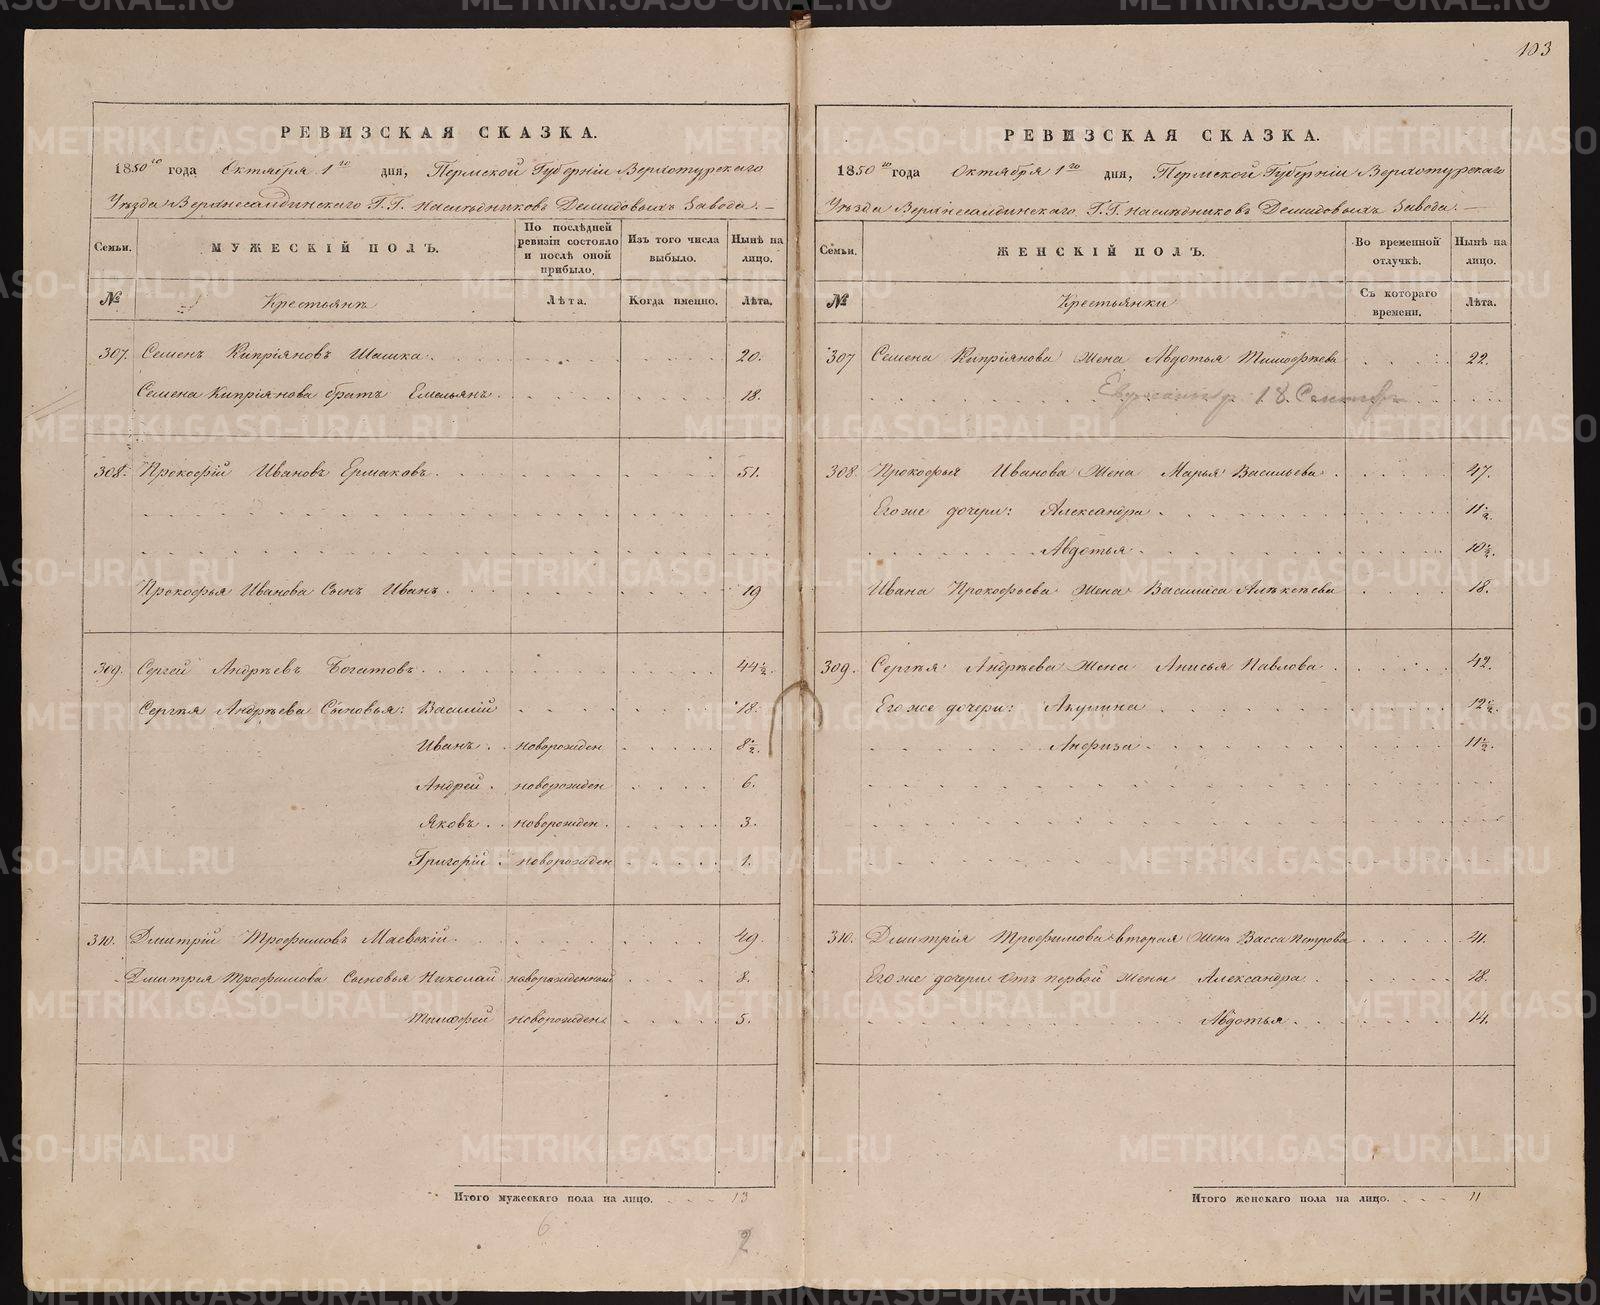 103
РЕВИЗСКАЯ СКАЗКА.
1850го года Октября 1го дня, Пермской Губерніи Верхотурскаго
Уѣзда Верхнесалдинскаго Г.Г. Наслѣдниковъ Демидовыхъ Завода.
Семьи. МУЖЕСКІЙ ПОЛЪ. По послѣдней ревизіи состояло и послѣ оной прибыло. Изъ того числа выбыло. Нынѣ на лицо.
№ Крестьянъ Лѣта. Когда именно. Лѣта.
307. Семенъ Кипріяновъ Шашка. 20.
Семена Кипріянова братъ Емельянъ. 18.
308. Прокофій Ивановъ Ермаковъ. 51.
Прокофья Иванова Сынъ Иванъ. 19
309. Сергей Андрѣевъ Богатовъ. 44½.
Сергѣя Андрѣева Сыновья: Василій 18.
Иванъ. новорожден 8½.
Андрей. новорожден 6.
Яковъ. новорожден. 3.
Григорій. новорожден 1.
310. Дмитрій Трофимовъ Маевскій. 49.
Дмитрія Трофимова Сыновья Николай новорожденный 8.
Тимофей новорожден. 5.
Итого мужескаго пола на лицо. 13
6
2
РЕВИЗСКАЯ СКАЗКА.
1850го года Октября 1го дня, Пермской Губерніи Верхотурскаго
Уѣзда Верхнесалдинскаго Г.Г. Наслѣдниковъ Демидовыхъ Завода.
Семьи. ЖЕНСКІЙ ПОЛЪ. Во временной отлучкѣ. Нынѣ на лицо.
№ Крестьянки Съ котораго времени. Лѣта.
307 Семена Кипріянова Жена Авдотья Тимофѣева 22.
18
308. Прокофья Иванова Жена Марья Васильева. 47.
Его же дочери: Александра. 11½.
Авдотья. 10½.
Ивана Прокофьева Жена Василиса Алѣксѣева 18.
309. Сергѣя Андрѣева Жена Анисья Павлова. 42.
Его же дочери: Акулина 12½.
Анфиза. 11½.
310. Дмитрія Трофимова вторая Жена Васса Петрова 41.
Его же дочери Отъ первой Жены Александра. 18.
Авдотья. 14.
Итого женскаго пола на лицо. 11
METRIKI.GASO-URAL.RU